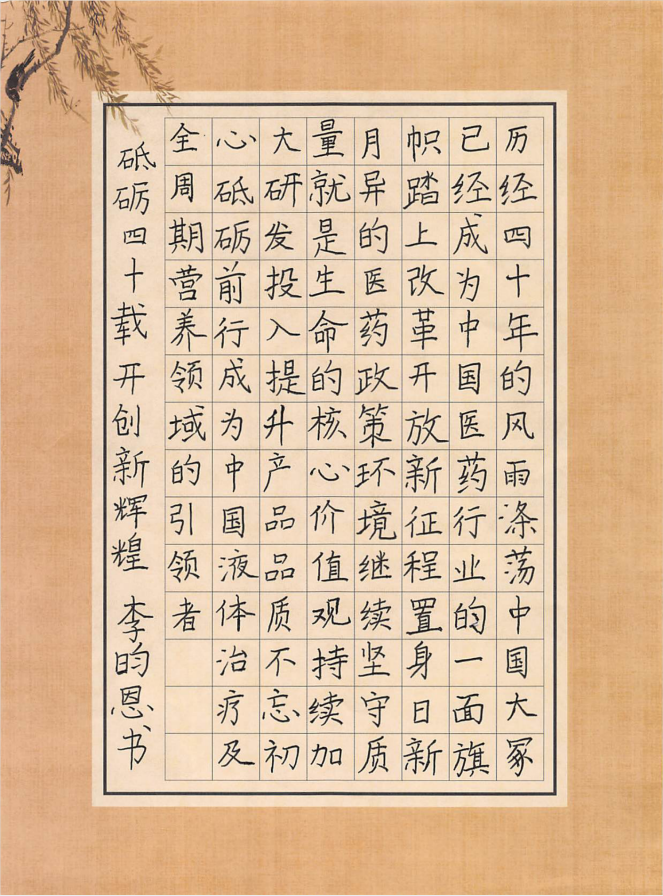 历经四十年的风雨涤荡中国大冢
已经成为中国医药行业的一面旗
帜踏上改革开放新征程置身日新
月异的医药政策环境继续坚守质
量就是生命的核心价值观持续加
大研发投入提升产品品质不忘初
心砥砺前行成为中国液体治疗及
全周期营养领域的引领者
砥砺四十载 开创新辉煌 李昀恩书